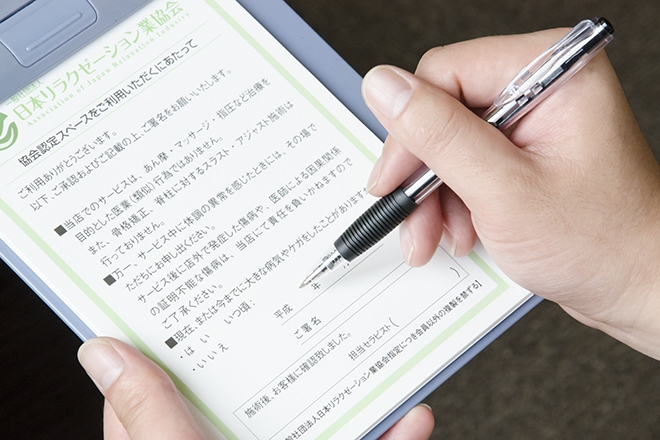 一般社団法人
日本リラクゼーション業協会
Association of Japan Relaxation Industry
協会認定スペースをご利用いただくにあたって
ご利用ありがとうございます。
以下、ご承認およびご記載の上、ご署名をお願いいたします。
■当店でのサービスは、あん摩・マッサージ・指圧など治療を
目的とした医業（類似）行為ではありません。
また、骨格矯正、脊柱に対するスラスト・アジャスト施術は
行っておりません。
■万一、サービス中に体調の異常を感じたときには、その場で
ただちにお申し出ください。
サービス後に店外で発症した傷病や、医師による因果関係
の証明不能な傷病は、当店にて責任を負いかねますので
ご了承ください。
■現在、または今までに大きな病気やケガをしたことがあります
・はい いつ頃：
・いいえ
平成 年
ご署名
施術後、お客様に確認致しました。
担当セラピスト（ ）
社団法人日本リラクゼーション業協会指定につき会員以外の複製を禁ずる】